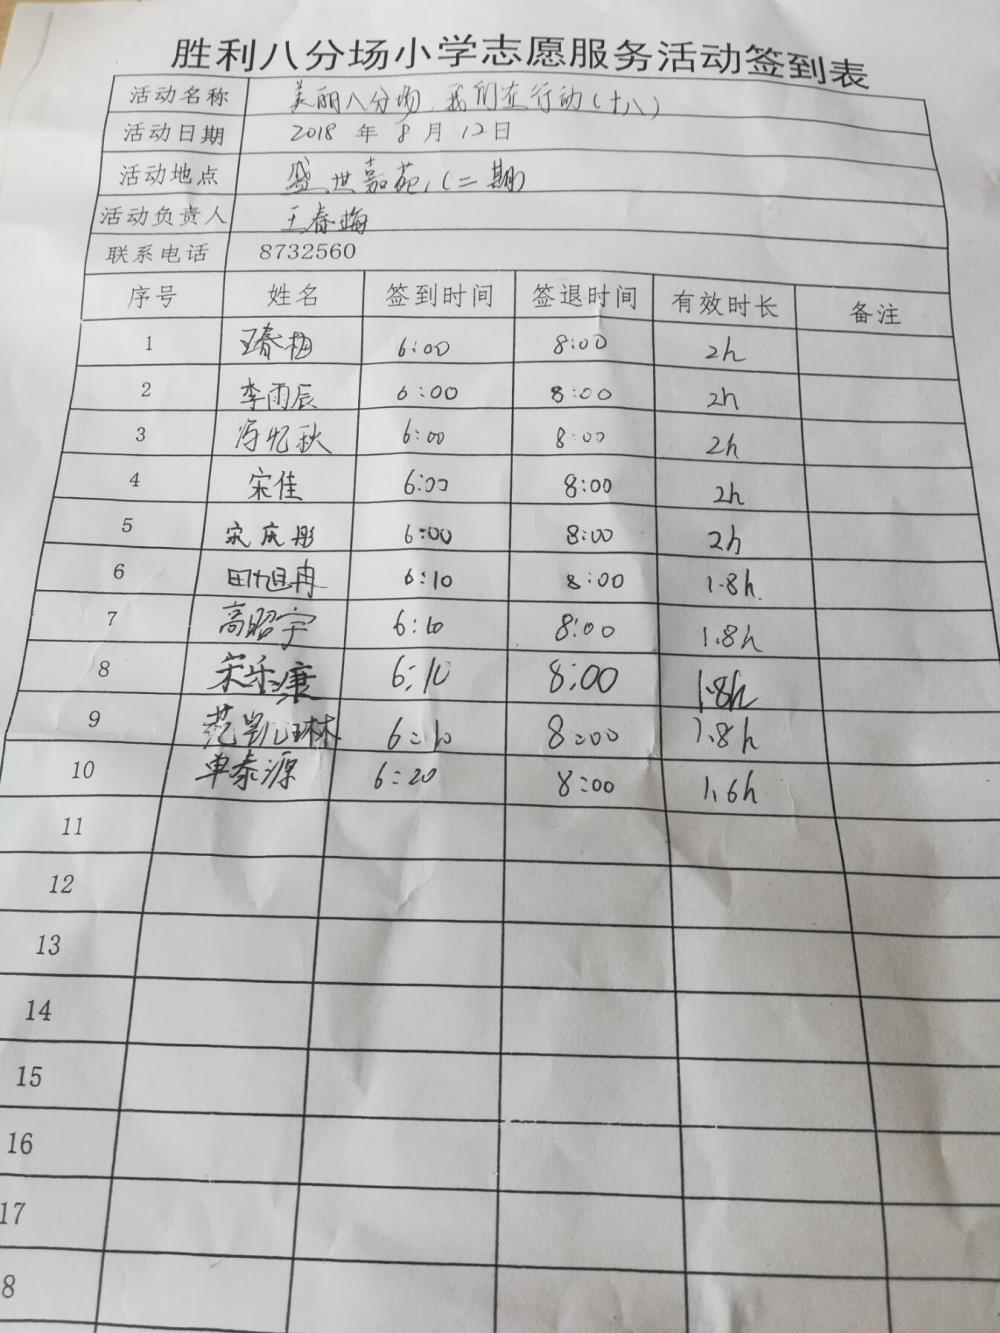 胜利八分场小学志愿服务活动签到表
活动名称 美丽八分场,我们在行动(十八)
活动日期 2018 年 8 月 12日
活动地点 盛世嘉苑(二期)
活动负责人 王春梅
联系电话 8732560
序号 姓名 签到时间 签退时间 有效时长 备注
1 王春梅 6:00 8:00 2h
2 李雨辰 6:00 8:00 2h
3 冯忆秋 6:00 8:00 2h
4 宋佳 6:00 8:00 2h
5 宋庆彤 6:00 8:00 2h
6 田旭冉 6:10 8:00 1.8h.
7 高昭宇 6:10 8:00 1.8h
8 宋乐康 6:10 8:00 1.8h
9 范凯琳 6:10 8:00 1.8h
10 单泰源 6:20 8:00 1.6h
11
12
13
14
15
16
17
8